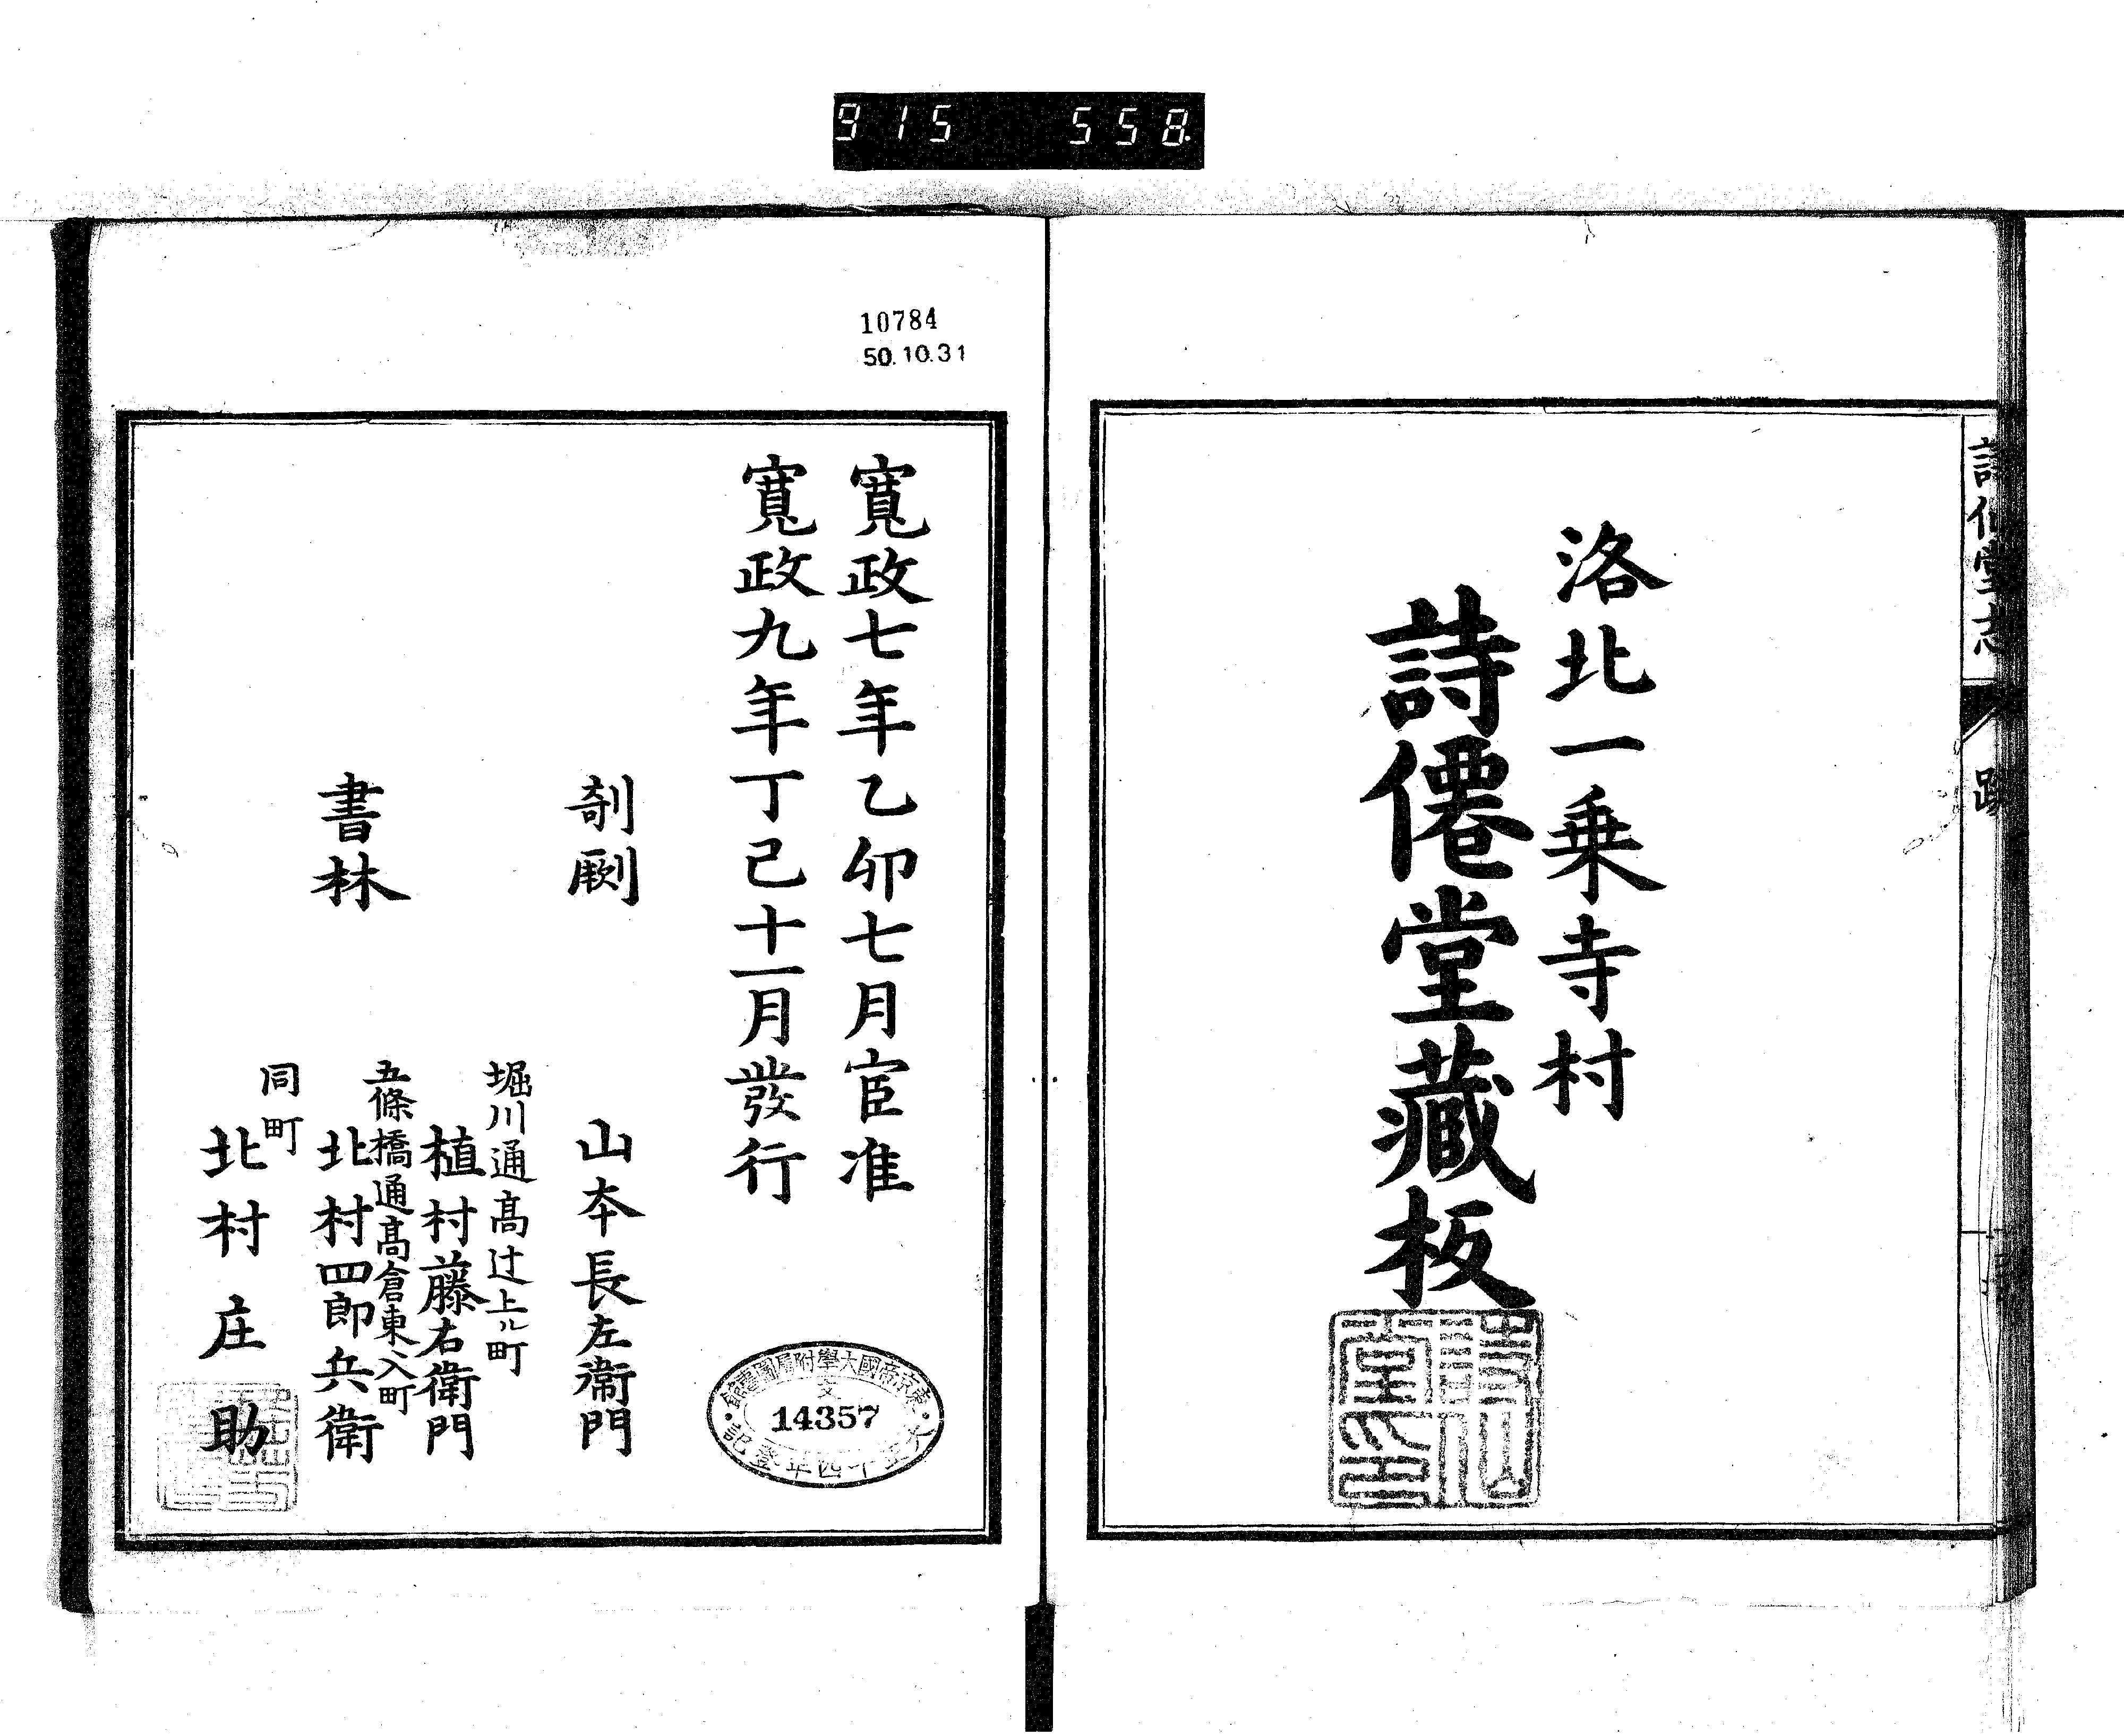 915 558
詩仙堂志
跋
洛北一乗寺村
詩僊堂藏板
詩仙堂印
10784
50.10.31
寛政七年乙卯七月官准
寛政九年丁巳十一月發行
剞劂
山本長左衛門
書林
堀川通髙辻上ル町
植村藤右衛門
五條橋通髙倉東ヘ入町
北村四郎兵衛
同町
北村庄助
東京帝國大學附屬圖書館
文
14357
大正十四年登記